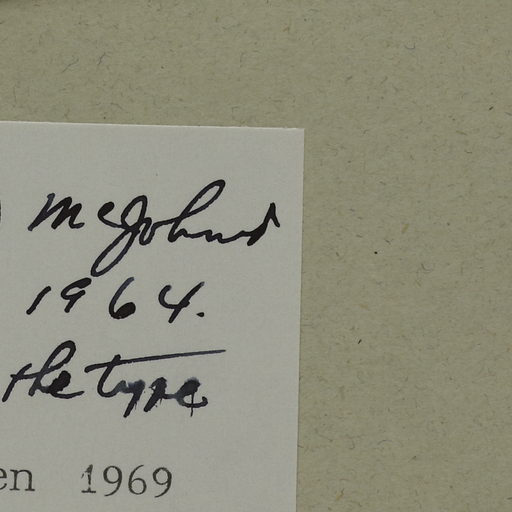 ) McJohnst
1964.
the type
en 1969